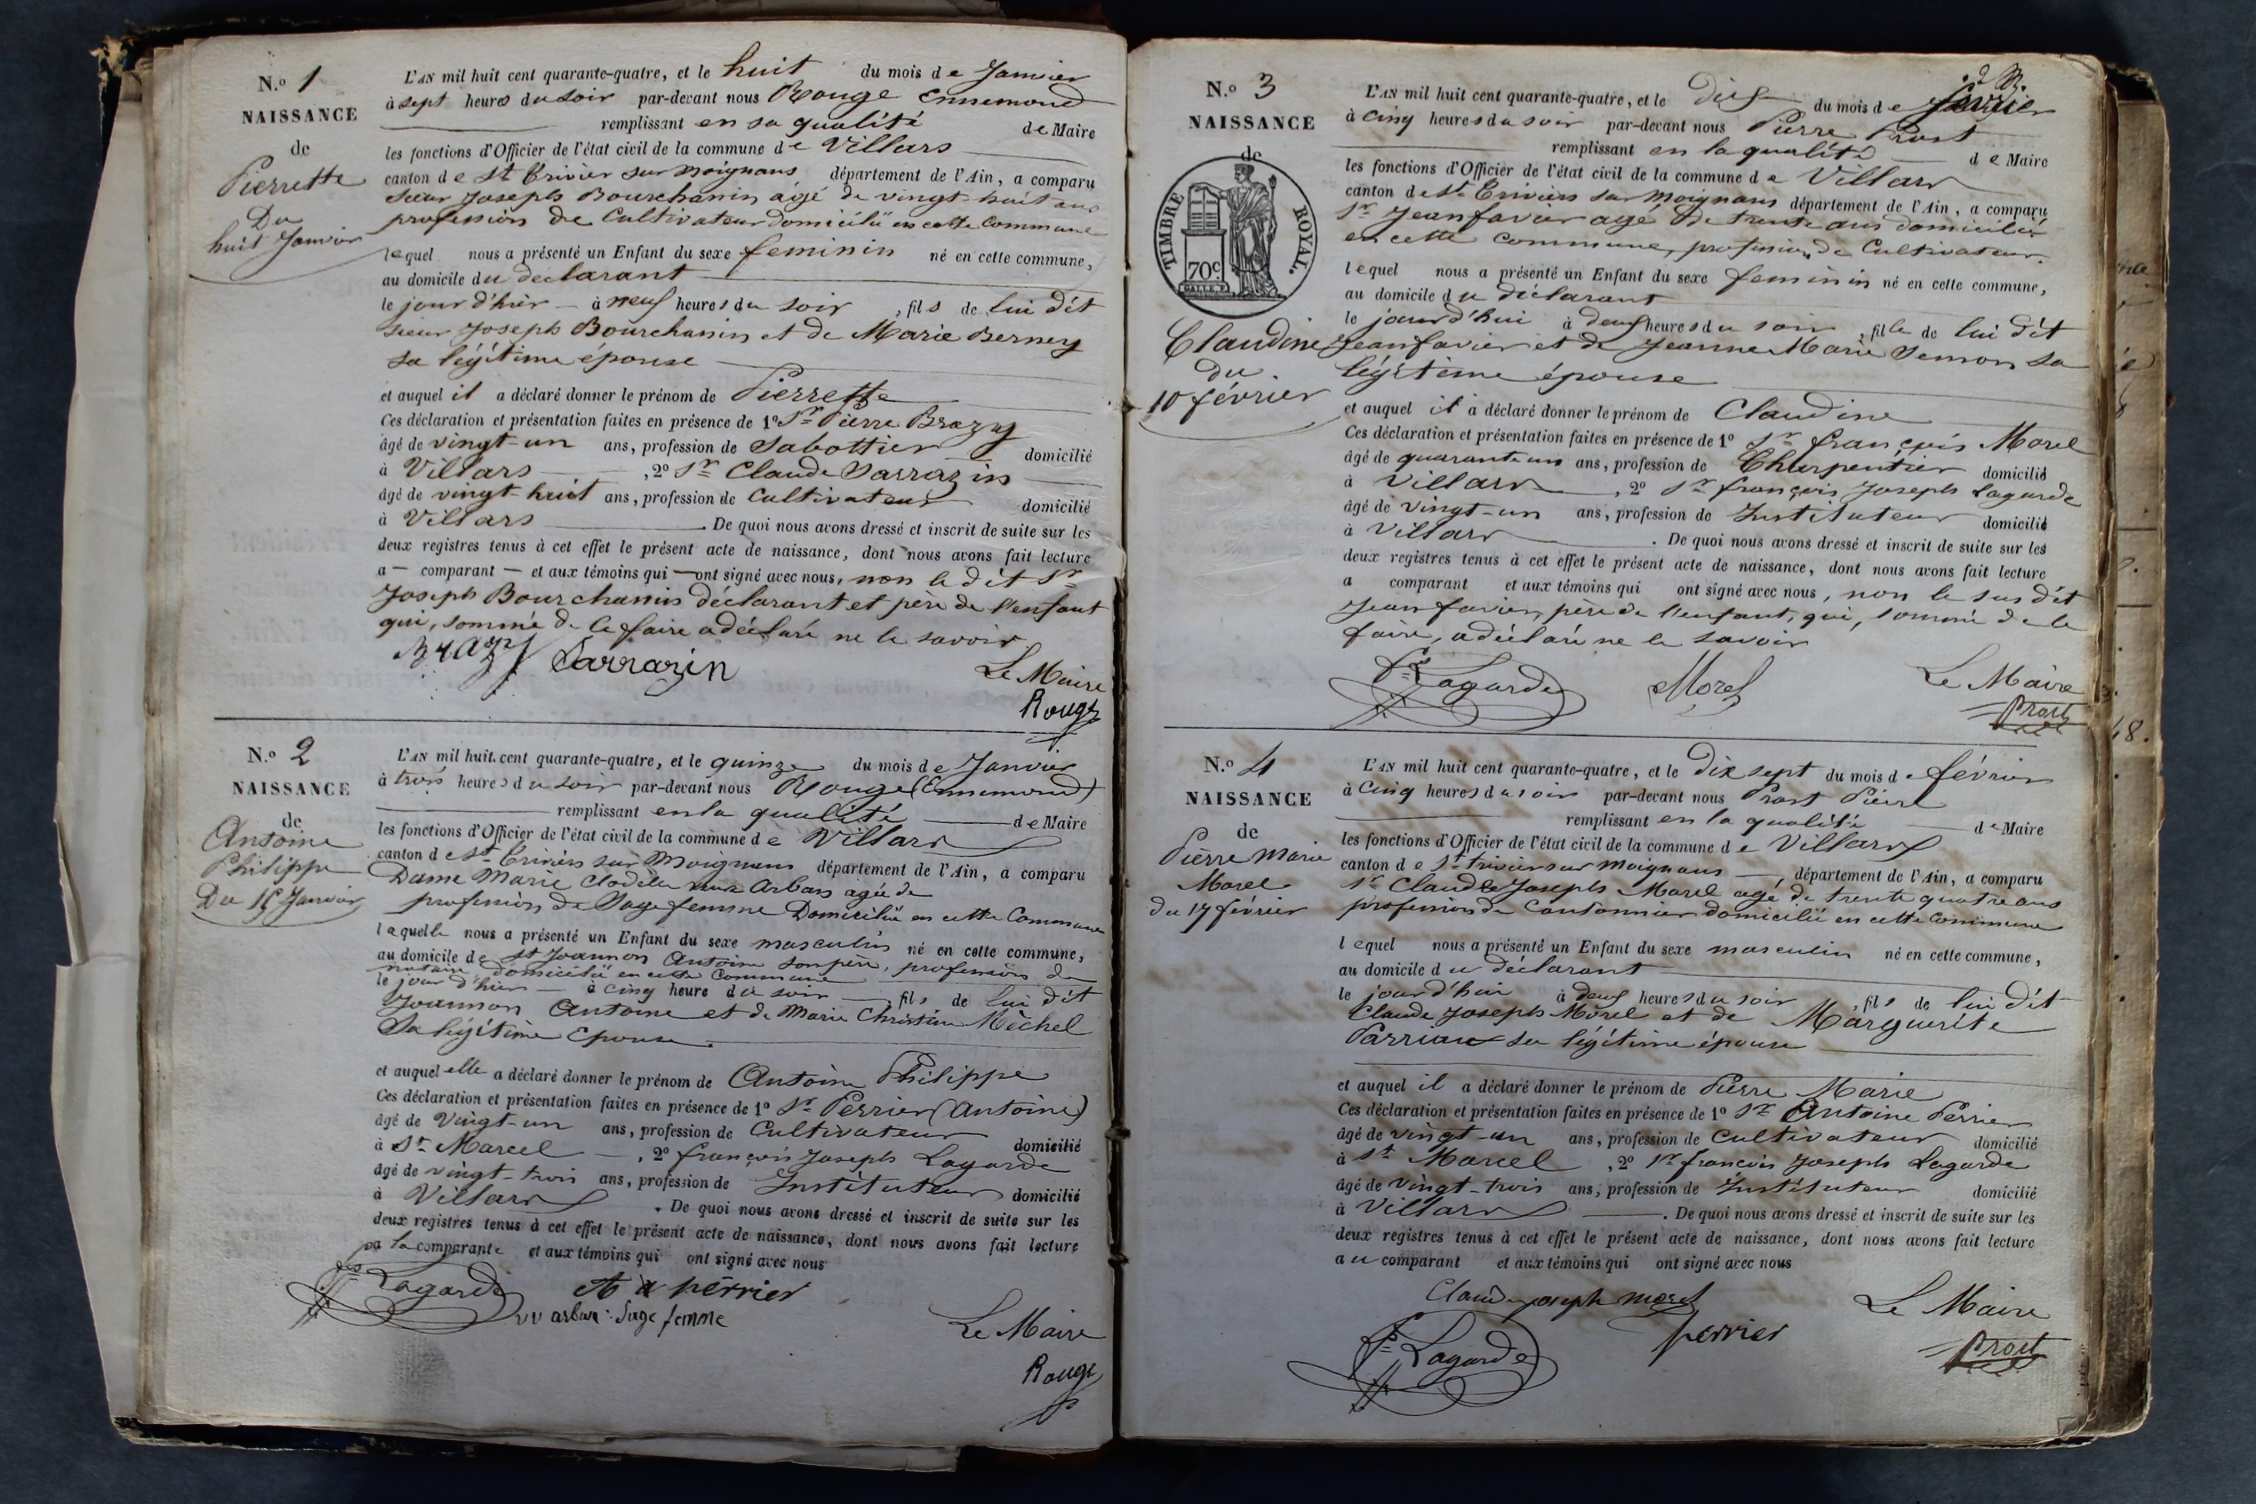 N.o 1
NAISSANCE
de
Pierrette
Du
huit Janvier
L'AN mil huit cent quarante-quatre, et le huit du mois de Janvier
à sept heures du soir par-devant nous Rouge Ennemond
remplissant en sa qualité de Maire
les fonctions d'Officier de l'état civil de la commune de Villars
canton de St Trivier sur Moignans département de l'Ain, a comparu
sieur Joseph Bourchanin âgé de vingt huit ans
profession de Cultivateur domicilié en cette commune
lequel nous a présenté un Enfant du sexe feminin né en cette commune,
au domicile du déclarant
le jour d'hier à neuf heures du soir, fils de lui dit
sieur Joseph Bourchanin et de Marie Berney
sa légitime épouse
et auquel il a déclaré donner le prénom de Pierrette
Ces déclaration et présentation faites en présence de 1º Sr Pierre Brazy
âgé de vingt-un ans, profession de Sabottier domicilié
à Villars, 2º Sr Claude Sarrazin
âgé de vingt-huit ans, profession de cultivateur domicilié
à Villars. De quoi nous avons dressé et inscrit de suite sur les
deux registres tenus à cet effet le présent acte de naissance, dont nous avons fait lecture
a — comparant — et aux témoins qui — ont signé avec nous, non le dit Sr
Joseph Bourchanin déclarant et père de l'enfant
qui, sommé de le faire a déclaré ne le savoir
Brazy Sarrazin
Le Maire
Rouge
N.o 2
NAISSANCE
de
Antoine
Philippe
Du 15 Janvier
L'AN mil huit cent quarante-quatre, et le quinze du mois de Janvier
à trois heures du soir par-devant nous Rouge (Ennemond)
remplissant en la qualité de Maire
les fonctions d'Officier de l'état civil de la commune de Villars
canton de St Trivier sur Moignans département de l'Ain, a comparu
Dame Marie arban agée de
profession de Sage femme Domiciliée en cette Commune
laquelle nous a présenté un Enfant du sexe masculin né en cette commune,
au domicile de Sr Joannon Antoine son père, profession de
notaire domicilié en cette Commune
le jour d'hier à cinq heure du soir, fils de lui dit
Joannon Antoine et de Marie Christine Méchel
Sa légitime Epouse.
et auquel elle a déclaré donner le prénom de Antoine Philippe
Ces déclaration et présentation faites en présence de 1º Sr Perrier (Antoine)
âgé de vingt-un ans, profession de Cultivateur domicilié
à St Marcel, 2º françois Joseph Lagarde
âgé de vingt-trois ans, profession de Instituteur domicilié
à Villars. De quoi nous avons dressé et inscrit de suite sur les
deux registres tenus à cet effet le présent acte de naissance, dont nous avons fait lecture
a la comparante et aux témoins qui ont signé avec nous
Lagarde perrier
vv arban Sage femme
Le Maire
Rouge
N.o 3
NAISSANCE
de
TIMBRE ROYAL.
70c
Claudine
du
10 février
L'AN mil huit cent quarante-quatre, et le dix du mois de février
à cinq heures du soir par-devant nous Pierre Prost
remplissant en la qualité de Maire
les fonctions d'Officier de l'état civil de la commune de Villars
canton de St Triviers sur Moignans département de l'Ain, a comparu
Sr Jean favier agé de trente ans domicilié
en cette commune, profession de Cultivateur.
lequel nous a présenté un Enfant du sexe feminin né en cette commune,
au domicile du déclarant
le jourd'hui à deux heures du soir, fille de lui dit
Jean favier et de Jeanne Marie Semon sa
légitime épouse
et auquel il a déclaré donner le prénom de Claudine
Ces déclaration et présentation faites en présence de 1º Sr françois Morel
âgé de quarante un ans, profession de Charpentier domicilié
à Villars, 2º Sr françois Joseph Lagarde
âgé de vingt-un ans, profession de Instituteur domicilié
à Villars. De quoi nous avons dressé et inscrit de suite sur les
deux registres tenus à cet effet le présent acte de naissance, dont nous avons fait lecture
a comparant et aux témoins qui ont signé avec nous, non le sus dit
Jean favier, père de l'enfant, qui, sommé de le
faire, a déclaré ne le savoir
Lagarde Morel
Le Maire
Prost
N.o 4
NAISSANCE
de
Pierre Marie
Morel
du 17 février
L'AN mil huit cent quarante-quatre, et le dix sept du mois de février
à cinq heures du soir par-devant nous Prost Pierre
remplissant en la qualité de Maire
les fonctions d'Officier de l'état civil de la commune de Villars
canton de St trivier sur Moignans, département de l'Ain, a comparu
Sr Claude Joseph Morel agé de trente quatre ans
profession de Cantonnier domicilié en cette Commune
lequel nous a présenté un Enfant du sexe masculin né en cette commune,
au domicile du déclarant
le jourd'hui à deux heures du soir, fils de lui dit
Claude Joseph Morel et de Marguerite
Parriau sa légitime épouse
et auquel il a déclaré donner le prénom de Pierre Marie
Ces déclaration et présentation faites en présence de 1º Sr Antoine Perrier
âgé de vingt-un ans, profession de Cultivateur domicilié
à St Marcel, 2º Sr françois Joseph Lagarde
âgé de vingt-trois ans, profession de Instituteur domicilié
à Villars. De quoi nous avons dressé et inscrit de suite sur les
deux registres tenus à cet effet le présent acte de naissance, dont nous avons fait lecture
au comparant et aux témoins qui ont signé avec nous
Claude joseph morel
Lagarde perrier
Le Maire
Prost